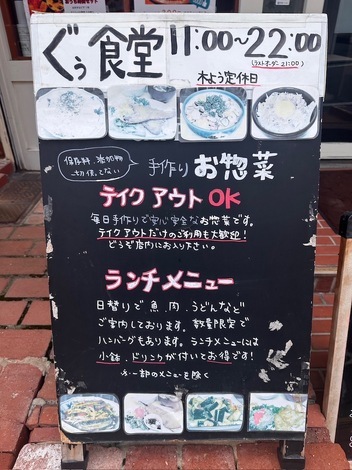 ぐぅ食堂 11:00〜22:00
(ラストオーダー21:00)
木よう定休日
保存料、添加物
一切使ってない
手作りお惣菜
テイクアウトOK
毎日手作りで安心安全なお惣菜です。
テイクアウトだけのご利用も大歓迎!
どうぞ店内にお入り下さい。
ランチメニュー
日替りで魚、肉、うどんなど
ご案内しております。数量限定で
ハンバーグもあります。ランチメニューには
小鉢、ドリンクが付いてお得です!
※一部のメニューを除く